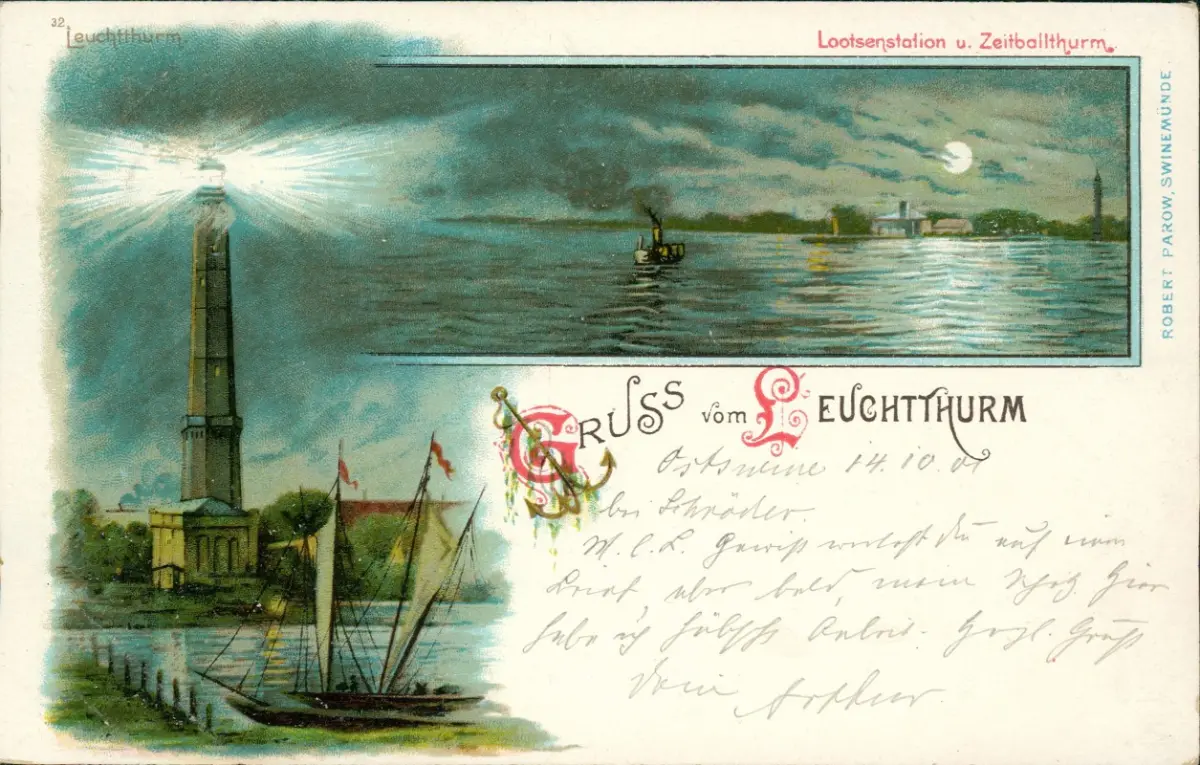 32
Leuchtthurm
Lootsenstation u. Zeitballthurm.
ROBERT PAROW, SWINEMÜNDE.
GRUSS vom LEUCHTTHURM
Ostswine 14.10.01
bei Schröder.
M. l. L. Gewiß wartest du auf einen
Brief, aber bald, mein Schatz. Hier
habe ich hübsche Arbeit. Herzl. Gruß
Dein Arthur